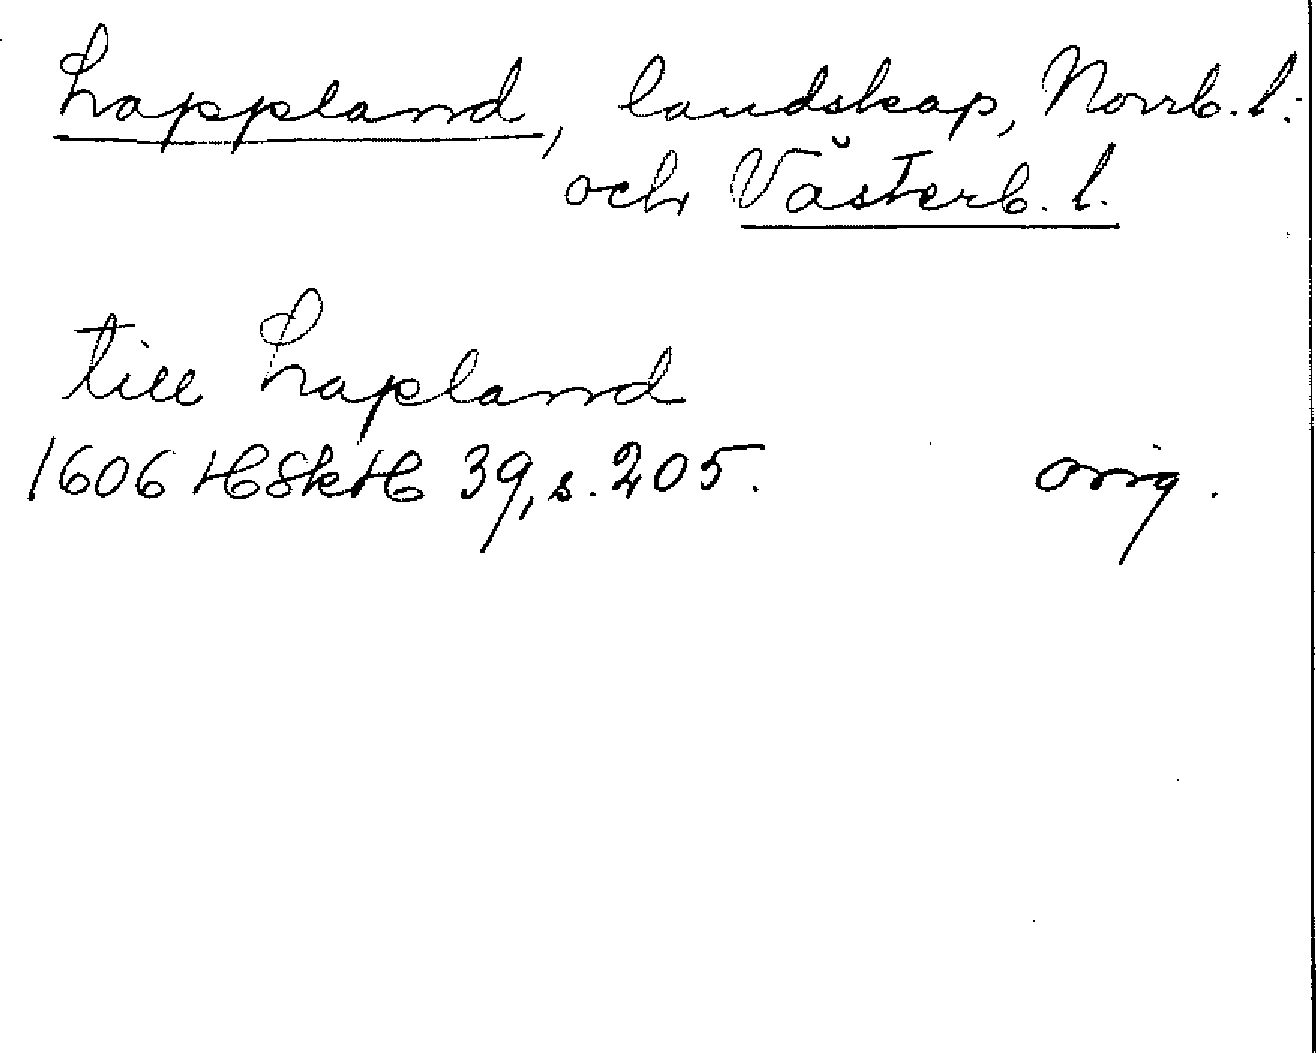 Lappland, landskap, Norrb. l.
och Västerb. l.
till Lapland
1606 HSkH 39, s. 205. orig.